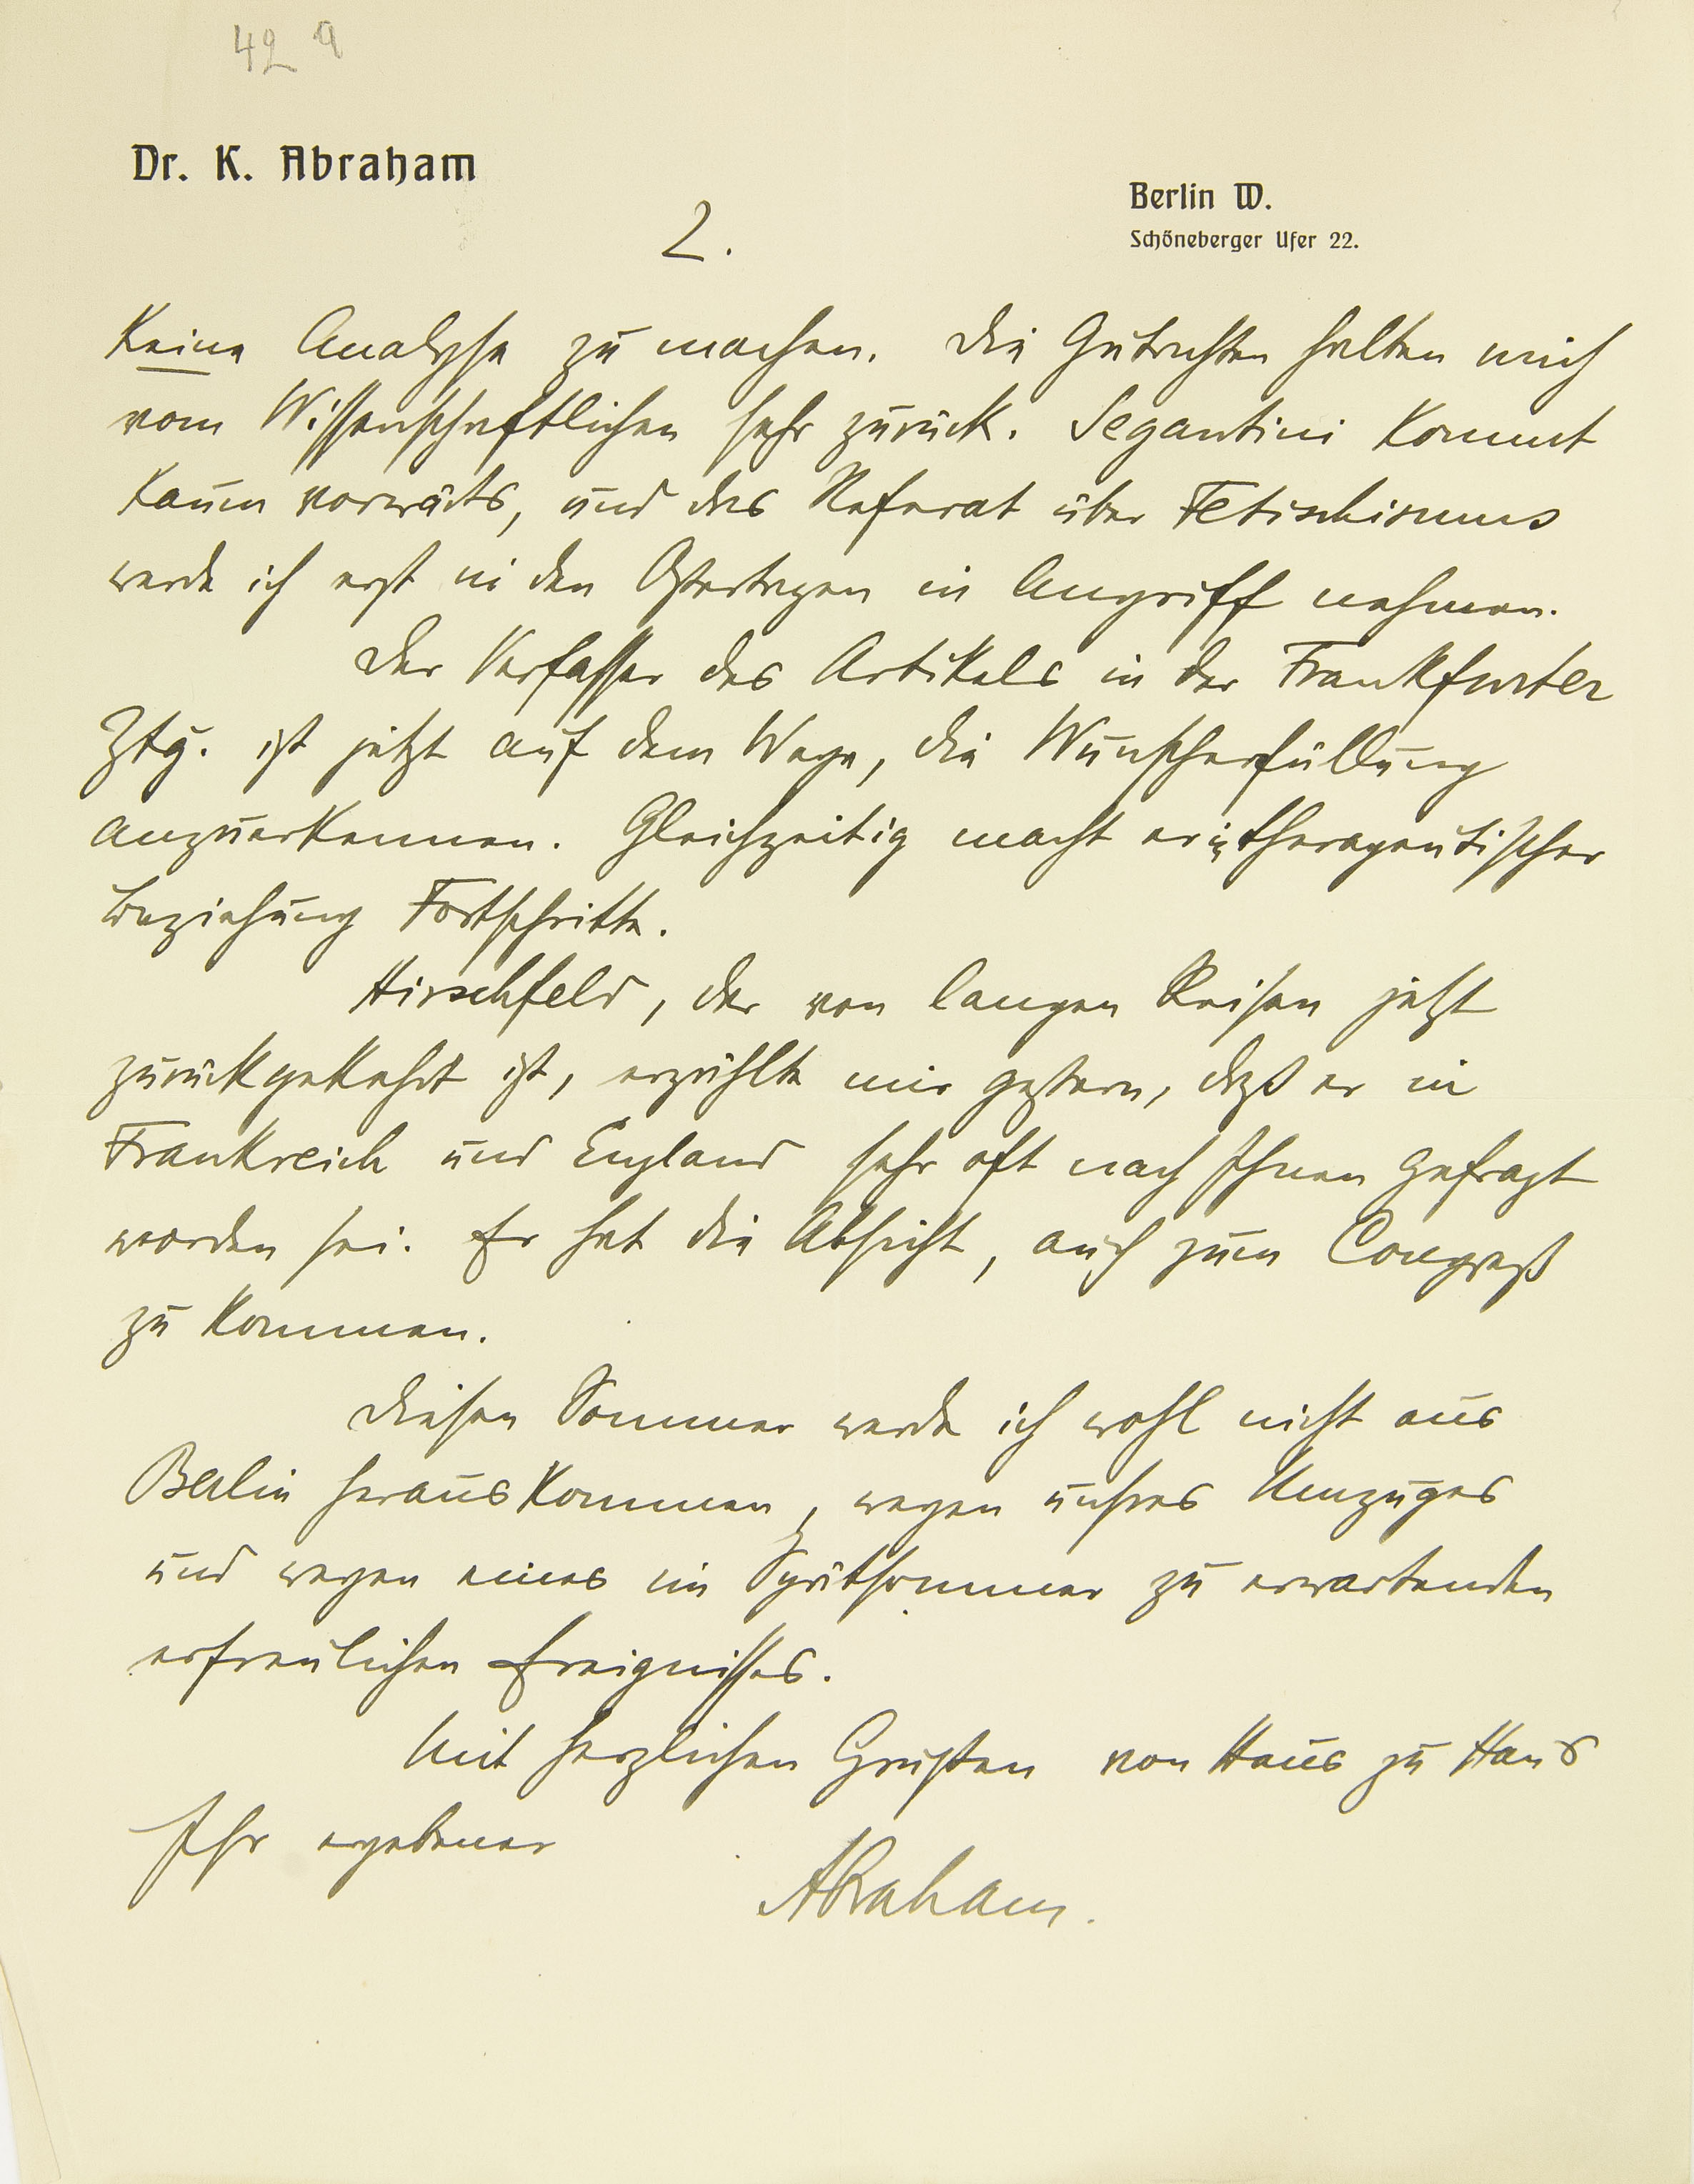 42 a
Dr. K. Abraham
Berlin W.
Schöneberger Ufer 22.
2.
keine Analyse zu machen. Die Gutachten halten mich
vom Wissenschaftlichen sehr zurück. Segantini kommt
kaum vorwärts, und das Referat über Fetischismus
werde ich erst in den Ostertagen in Angriff nehmen.
Der Verfasser des Artikels in der Frankfurter
Ztg. ist jetzt auf dem Wege, die Wunscherfüllung
anzuerkennen. Gleichzeitig macht er in therapeutischer
Beziehung Fortschritte.
Hirschfeld, der von langen Reisen jetzt
zurückgekehrt ist, erzählte mir gestern, daß er in
Frankreich und England sehr oft nach Ihnen gefragt
worden sei. Er hat die Absicht, auch zum Congreß
zu kommen.
Diesen Sommer werde ich wohl nicht aus
Berlin herauskommen, wegen unsres Umzuges
und wegen eines im Spätsommer zu erwartenden
erfreulichen Ereignisses.
Mit herzlichen Grüßen von Haus zu Haus
Ihr ergebener
Abraham.